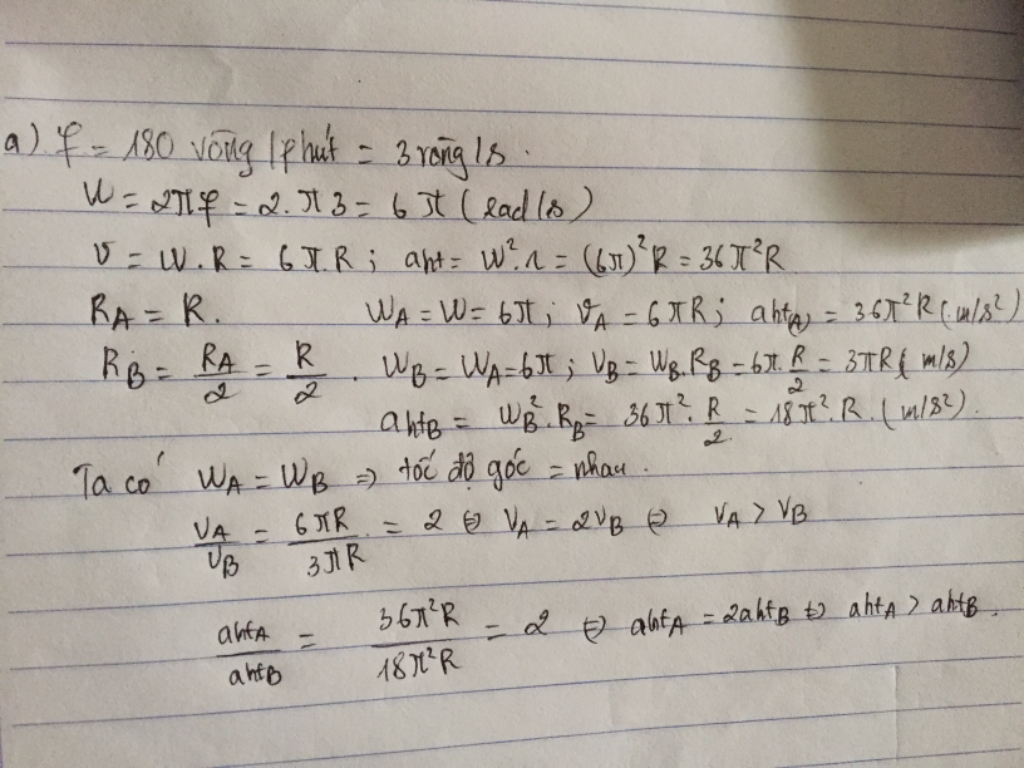 a) f = 180 vòng/phút = 3 vòng/s.
W = 2πf = 2.π3 = 6π (rad/s)
v = W.R = 6π.R; aht = W².r = (6π)²R = 36π²R
R_A = R. W_A = W = 6π; v_A = 6πR; aht(A) = 36π²R (m/s²)
R_B = R_A/2 = R/2. W_B = W_A = 6π; V_B = W_B.R_B = 6π.R/2 = 3πR (m/s)
aht_B = W_B².R_B = 36π².R/2 = 18π².R.(m/s²).
Ta có W_A = W_B => tốc độ góc = nhau.
V_A/V_B = 6πR/3πR = 2 ⇔ V_A = 2V_B ⇔ V_A > V_B
aht_A/aht_B = 36π²R/18π²R = 2 ⇔ aht_A = 2aht_B ⇔ aht_A > aht_B.